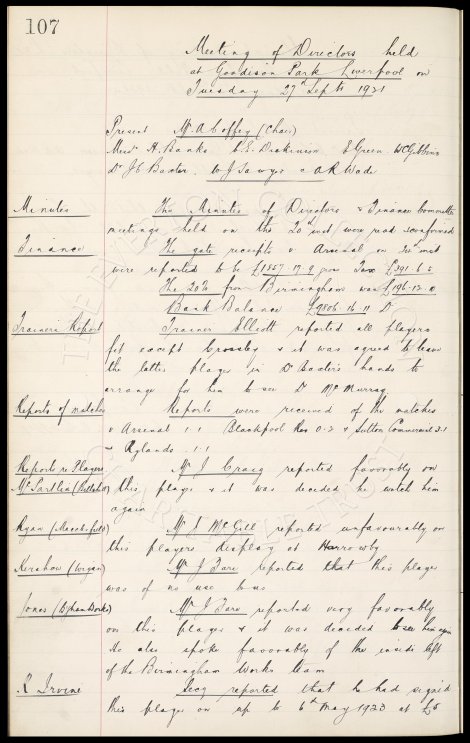 107
Meeting of Directors held
at Goodison Park Liverpool on
Tuesday 27th Septr 1921
Present Mr A Coffey (Chair)
Messrs A. Banks C. E. Dickinson E Green W C Gibbins
Dr J E Baxter W J Sawyer & A R Wade
Minutes The Minutes of Directors & Finance Committee
meetings held on the 20th inst were read & confirmed
Finance The gate receipts v Arsenal on inst
were reported to be £1557-17-9 Tax £391-6-
The 20% from Birmingham was £196-12-0
Bank Balance £9806-16-11 Dr
Trainers Report Trainer Elliott reported all players
fit except Crossley & it was agreed to leave
the latter player in Dr Baxter's hands to
arrange for him to see Dr McMurray
Reports of matches Reports were received of the matches
v Arsenal 1.1 Blackpool Res 0-2 & Sutton Commercial 3.1
Rylands 1.1
Reports re Players Mr J Craig reported favorably on
McPartlin this player & it was decided to watch him
again
Ryan (Macclesfield) Mr J McGill reported unfavourably on
this players display at Harrowby
Kershaw (Wigan) Mr J Fare reported that this player
was of no use to us
Jones Mr J Fare reported very favorably
on this player & it was decided to see him again
He also spoke favorably of the inside left
of the Birmingham Works team
R Irvine Secy reported that he had signed
this player on up to 6th May 1923 at £5